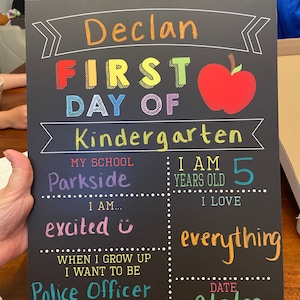 Declan
FIRST
DAY OF
Kindergarten
MY SCHOOL
Parkside
I AM
YEARS OLD 5
I AM...
excited
I LOVE
everything
WHEN I GROW UP
I WANT TO BE
Police Officer
DATE